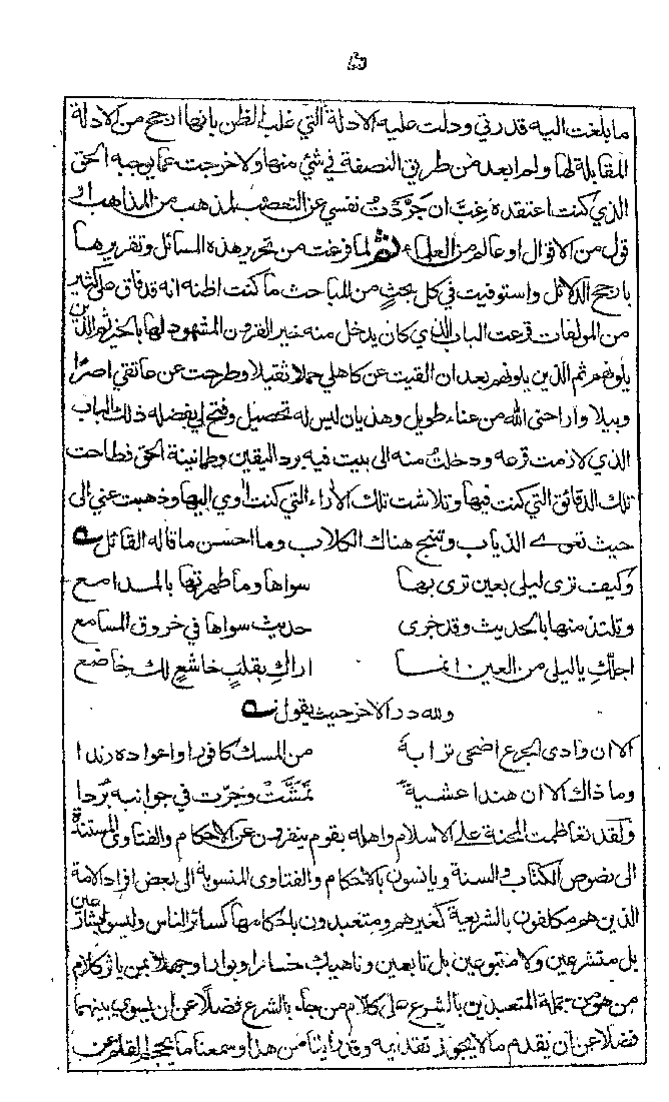 ما بلغت اليه قدرتي ودلت عليه الادلة التي غلب الظن بانها ارجح من الادلة
المقابلة لها ولم ابعد من طريق النصفة في شئ منها ولا خرجت عما يوجبه الحق
الذي كنت اعتقده رغب ان جردت نفسي عن التعصب لمذهب من المذاهب او
قول من الاقوال او عالم من العلماء ثم لما فرغت من تحرير هذه المسائل وتقريرها
بارجح الدلائل واستوفيت في كل بحث من المباحث ما كنت اظنه انه قد فاق على كثير
من المولفات قرعت الباب الذي كان يدخل منه خير القرون المشهود لها بالخير ثم الذين
يلونهم ثم الذين يلونهم بعد ان القيت عن كاهلي حملا ثقيلا وطرحت عن عاتقي اصرا
وبيلا واراحني الله من عناء طويل وهذيان ليس له تحصيل وفتح لي بفضله ذلك الباب
الذي لازمت قرعه ودخلت منه الى بيت فيه برد اليقين وطمانينة الحق فطاحت
تلك الدقائق التي كنت فيها وتلاشت تلك الأراء التي كنت أوي اليها وذهبت عني الى
حيث تعوے الذياب وتنبح هناك الكلاب وما احسن ما قاله القائل
وكيف ترى ليلى بعين ترى بها سواها وما طهرتها بالمدامع
وتلتذ منها بالحديث وقد جرى حديث سواها في خروق المسامع
اجلك يا ليلى من العين انما اراك بقلب خاشع لك خاضع
ولله در الاخر حيث يقول
الا ان وادي الجزع اضحى ترابه من المسك كافورا واعواده رندا
وما ذاك الا ان هندا عشية تمشت وجرت في جوانبه بردا
ولقد تعاظمت المحنة على الاسلام واهله بقوم ينفرون عن الاحكام والفتاوى المستندة
الى نصوص الكتاب والسنة ويانسون بالاحكام والفتاوى المنسوبة الى بعض افراد الامة
الذين هم مكلفون بالشريعة كغيرهم ومتعبدون باحكامها كسائر الناس وليسوا بشارعين
بل متشرعين ولا متبوعين بل تابعين وناهيك خسارا وبوارا وجهلا بمن ياثر كلام
من هو من جملة المتعبدين بالشرع على كلام من جاء بالشرع فضلا عن ان يسوي بينهما
فضلا عن ان يقدم ما لا يجوز تقديمه وقد راينا من هذا وسمعنا ما يحجم القلم عن